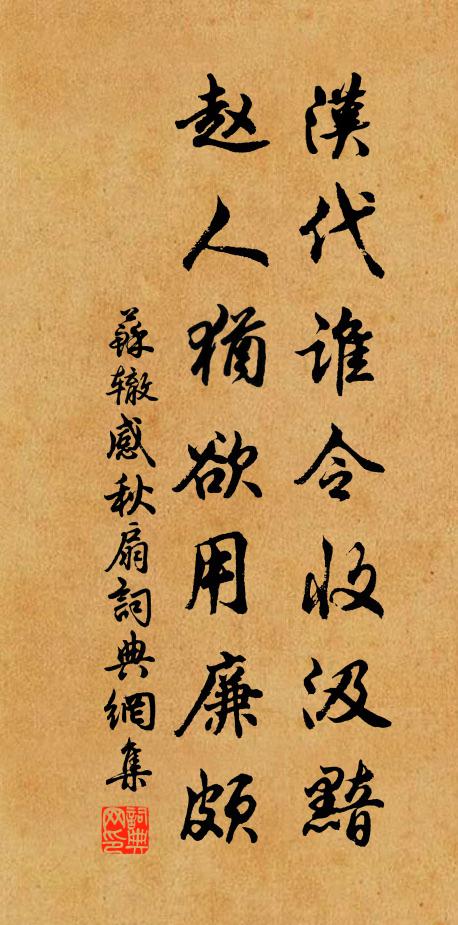 漢代誰令收汲黯
赵人猶欲用廉頗
蘇辙感秋扇詞典網集
詞典网印